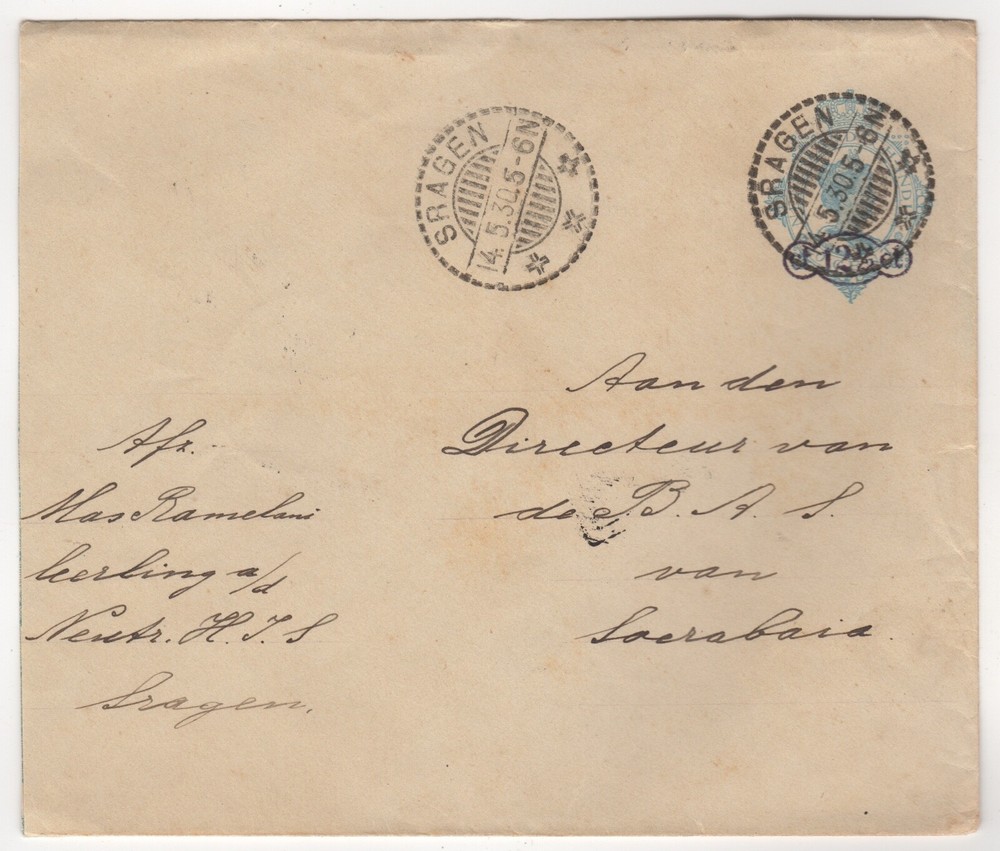 SRAGEN
14.5.30.5-6N
SRAGEN
14.5.30.5-6N
ct 12½ ct
Aan den
Directeur van
de B. A. S.
van
Soerabaia.
Afz.
Mas Ramelani
leerling a/d
Neutr. H. I. S
Sragen.